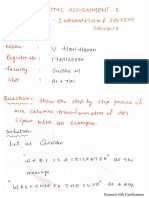 DIGITAL ASSIGNMENT-2
- INFORMATION & SYSTEM
SECURITY
Name : V Hari Haran
Register No :
Faculty :
Slot : A1 + TA1
Question: Show the step by step process of
mix columns transformation of AES
Cipher with an example.
Solution:
Let us Consider
"HARI IS A CRICKETER" as the
Message
"WELCOME TO THE CLUB" as a key
Scanned with CamScanner